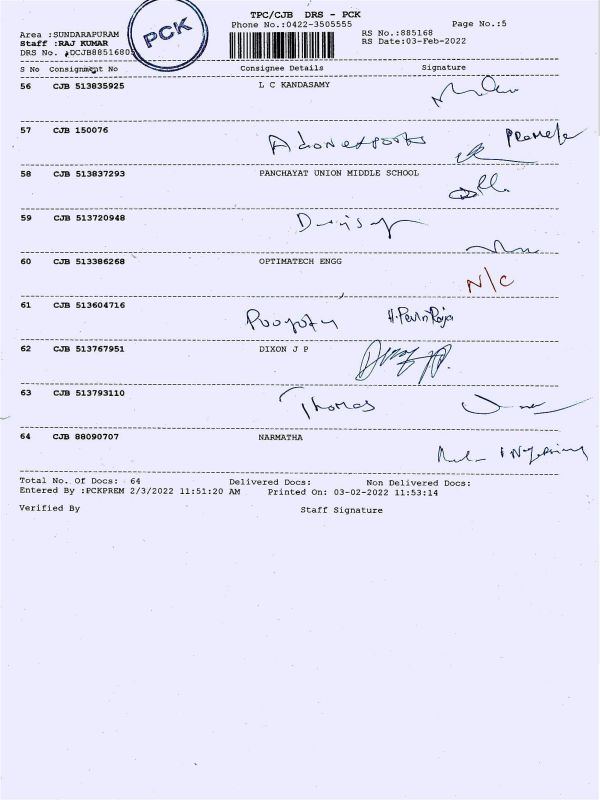 TPC/CJB DRS - PCK
Phone No.:0422-3505555
Page No.:5
PCK
Area :SUNDARAPURAM
RS No.:885168
Staff :RAJ KUMAR
RS Date:03-Feb-2022
DRS No. :DCJB8851680
S No Consignment No Consignee Details Signature
56 CJB 513835925 L C KANDASAMY
57 CJB 150076
58 CJB 513837293 PANCHAYAT UNION MIDDLE SCHOOL
59 CJB 513720948
60 CJB 513386268 OPTIMATECH ENGG
N/C
61 CJB 513604716
62 CJB 513767951 DIXON J P
63 CJB 513793110 Thomas
64 CJB 88090707 NARMATHA
Total No. Of Docs: 64 Delivered Docs: Non Delivered Docs:
Entered By :PCKPREM 2/3/2022 11:51:20 AM Printed On: 03-02-2022 11:53:14
Verified By Staff Signature